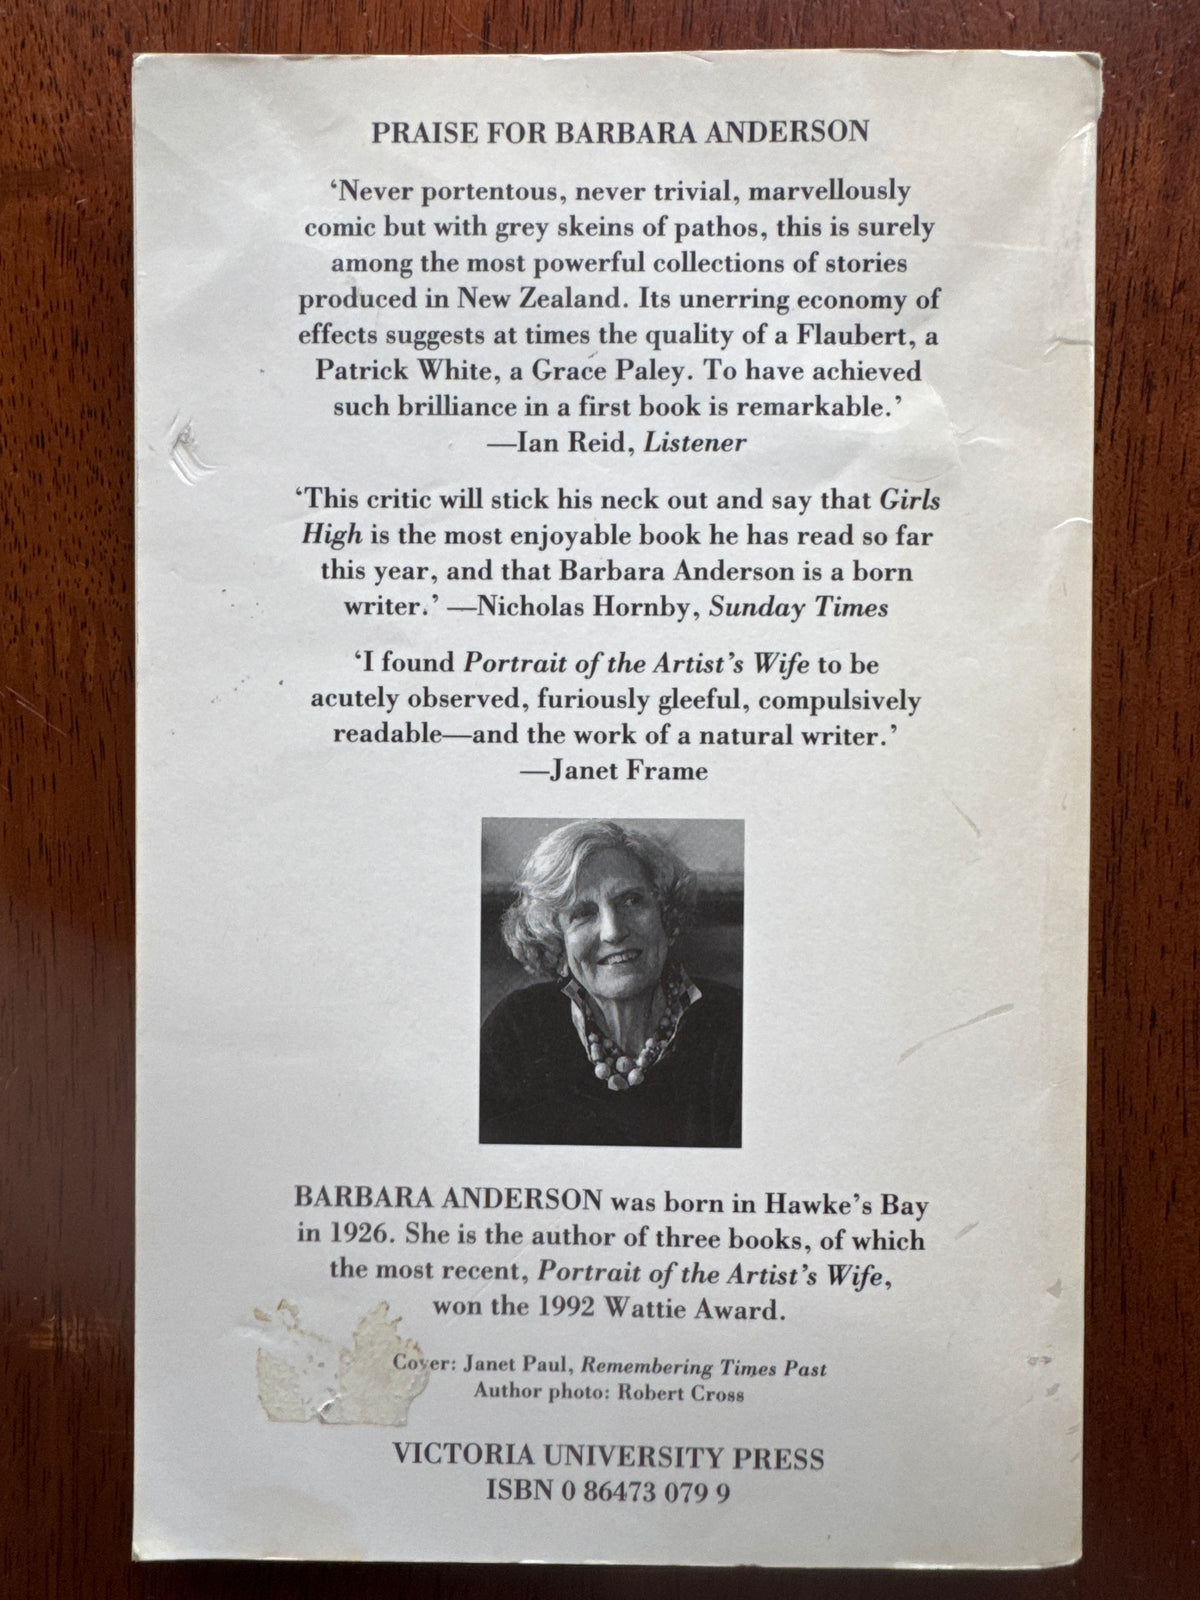 PRAISE FOR BARBARA ANDERSON
‘Never portentous, never trivial, marvellously
comic but with grey skeins of pathos, this is surely
among the most powerful collections of stories
produced in New Zealand. Its unerring economy of
effects suggests at times the quality of a Flaubert, a
Patrick White, a Grace Paley. To have achieved
such brilliance in a first book is remarkable.’
—Ian Reid, Listener
‘This critic will stick his neck out and say that Girls
High is the most enjoyable book he has read so far
this year, and that Barbara Anderson is a born
writer.’ —Nicholas Hornby, Sunday Times
‘I found Portrait of the Artist’s Wife to be
acutely observed, furiously gleeful, compulsively
readable—and the work of a natural writer.’
—Janet Frame
BARBARA ANDERSON was born in Hawke’s Bay
in 1926. She is the author of three books, of which
the most recent, Portrait of the Artist’s Wife,
won the 1992 Wattie Award.
Cover: Janet Paul, Remembering Times Past
Author photo: Robert Cross
VICTORIA UNIVERSITY PRESS
ISBN 0 86473 079 9